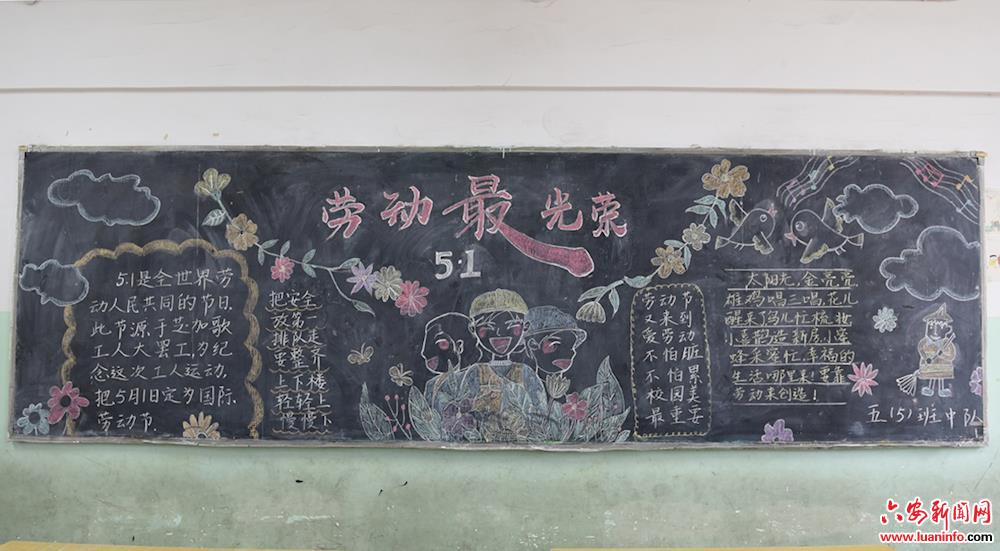 劳动最光荣
5·1
5.1是全世界劳
动人民共同的节日.
此节源于芝加歌
工人大罢工,为纪
念这次工人运动,
把5月1日定为国际
劳动节.
把安全
放第一
排队走
要整齐
上下楼
轻轻上
慢慢下
劳动节
又来到
爱劳动
不怕脏
不怕累
极因美
最重要
太阳光,金亮亮,
雄鸡唱三唱,花儿
醒来了鸟儿忙梳妆
小喜鹊造新房,小蜜
蜂采蜜忙,幸福的
生活哪里来?要靠
劳动来创造!
五(5)班中队
六安新闻网
www.luaninfo.com